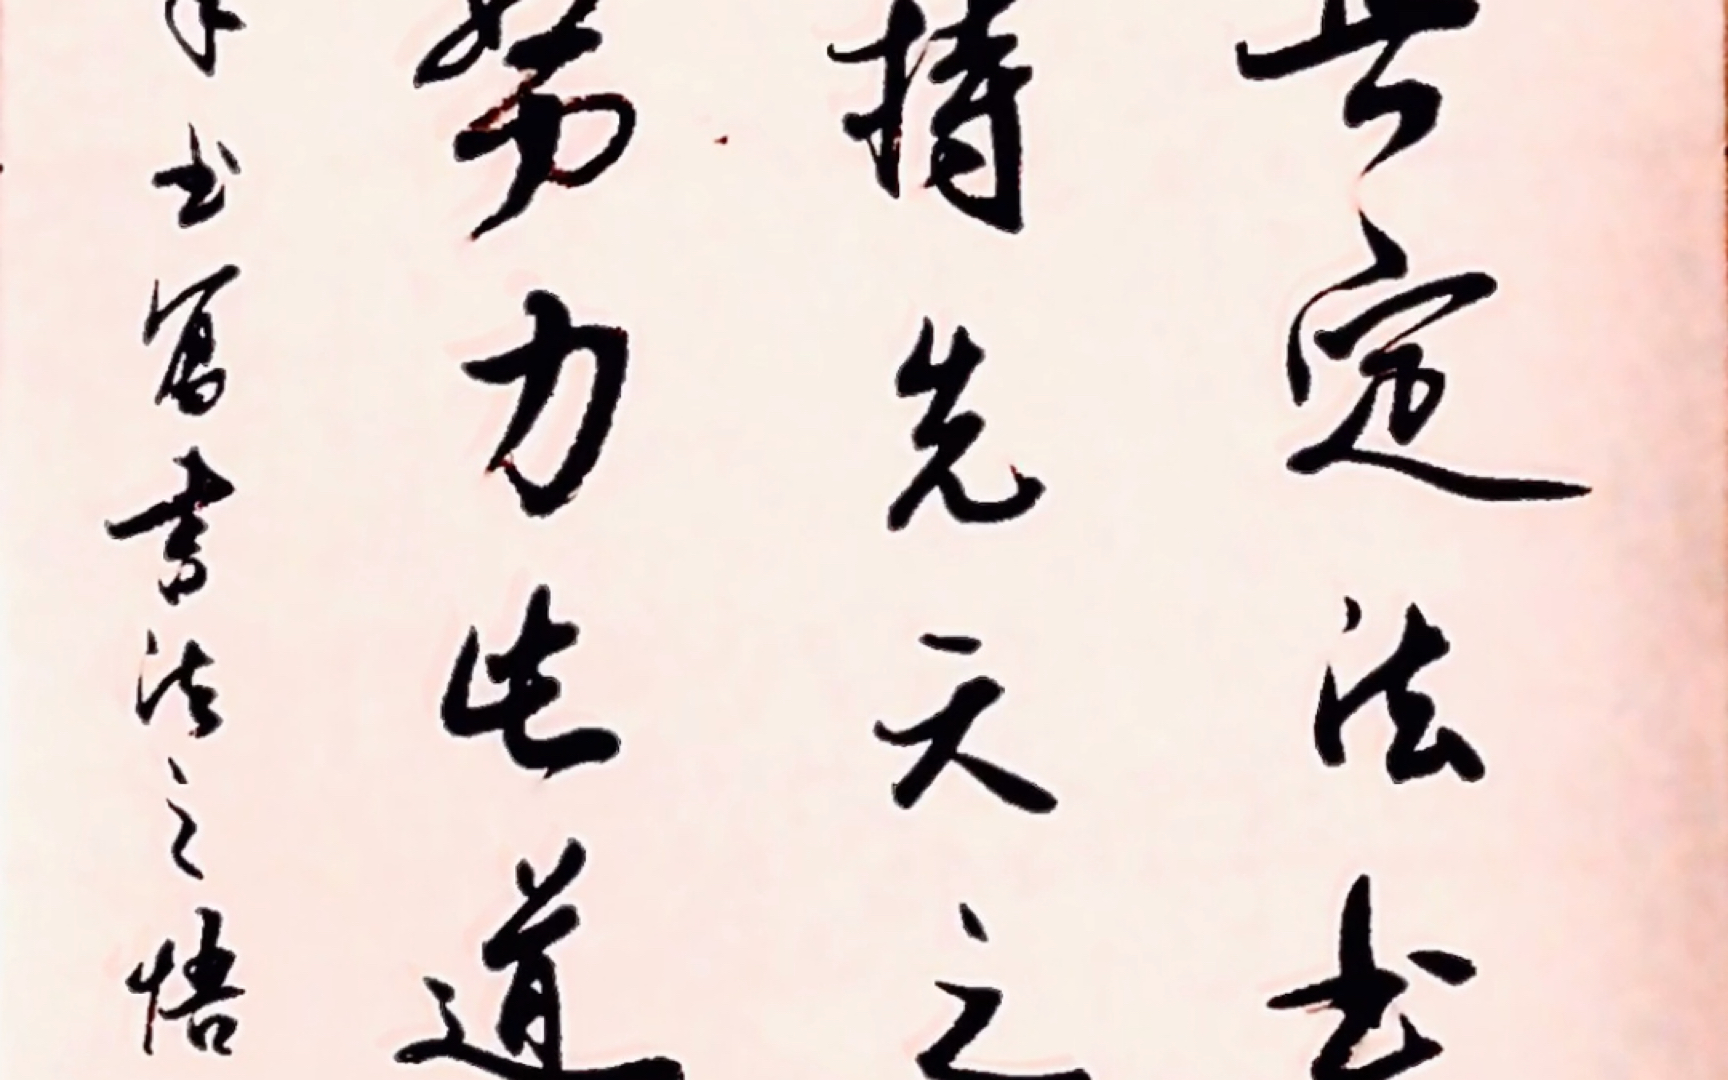 定法书
持先天之
努力此道
书写書法之悟